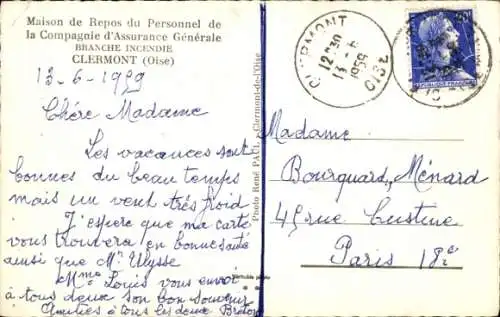 Maison de Repos du Personnel de
la Compagnie d'Assurance Générale
BRANCHE INCENDIE
CLERMONT (Oise)
13-6-1959
Chére Madame
Les vacances sont
bonnes du beau temps
mais un vent trés froid
J'espere que ma carte
vous trouvera en bonne santé
ainsi que Mr Ulysse
Mme Louis vous envoi
à tous deux son bon souvenir
Amitiés à tous les deux
Photo René PAUL, Clermont-de-l'Oise
CLERMONT
12H30
13-6
1959
OISE
Madame
Bourquard, Ménard
45 rue Custine
Paris 18e